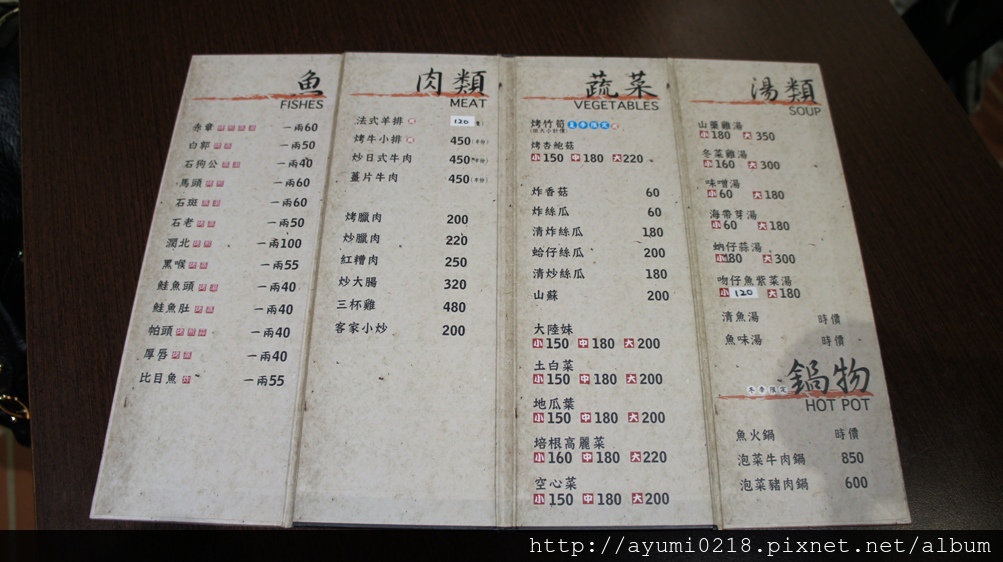 魚
FISHES
赤章 一兩60
白郭 一兩50
石狗公 一兩40
馬頭 一兩60
石斑 一兩60
石老 一兩50
潤北 一兩100
黑喉 一兩55
鮭魚頭 一兩40
鮭魚肚 一兩40
帕頭 一兩40
厚唇 一兩40
比目魚 一兩55
肉類
MEAT
法式羊排 120
烤牛小排 450
炒日式牛肉 450
薑片牛肉 450
烤臘肉 200
炒臘肉 220
紅糟肉 250
炒大腸 320
三杯雞 480
客家小炒 200
蔬菜
VEGETABLES
烤竹筍 夏季限定
烤杏鮑菇
小150 中180 大220
炸香菇 60
炸絲瓜 60
清炸絲瓜 180
蛤仔絲瓜 200
清炒絲瓜 180
山蘇 200
大陸妹
小150 中180 大200
土白菜
小150 中180 大200
地瓜葉
小150 中180 大200
培根高麗菜
小160 中180 大220
空心菜
小150 中180 大200
湯類
SOUP
山藥雞湯
小180 大350
冬菜雞湯
小160 大300
味噌湯
小60 大180
海帶芽湯
小60 大180
蚋仔蒜湯
小80 大300
吻仔魚紫菜湯
小120 大180
清魚湯 時價
魚味湯 時價
冬季限定 鍋物
HOT POT
魚火鍋 時價
泡菜牛肉鍋 850
泡菜豬肉鍋 600
http://ayumi0218.pixnet.net/album